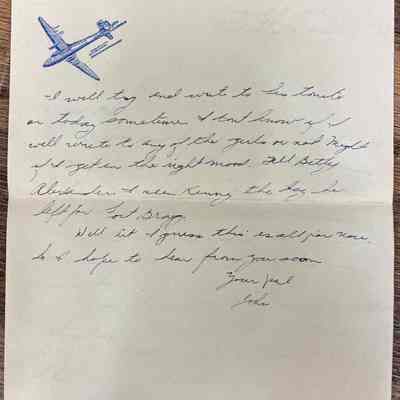 I will try and write to Lis tonite
or today sometime. I dont know if I
will write to any of the girls or not. Might
if I get in the right mood. Tell Betty
Alexander I seen Kenny the day he
left for Fort Bragg.
Well Lit I guess this is all for now.
So I hope to hear from you soon
Your pal
John